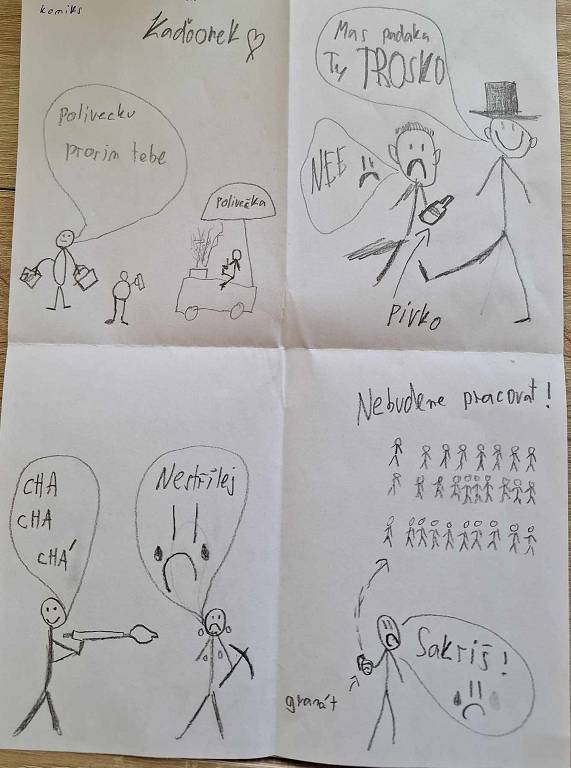 komiks
Kaďoorek
Polivecku
prosim tebe
Polívečka
Mas padaka
Ty TROSKO
NEE
Pivko
CHA
CHA
CHÁ
Nestřílej
Nebudeme pracovat!
Sakriš!
granát